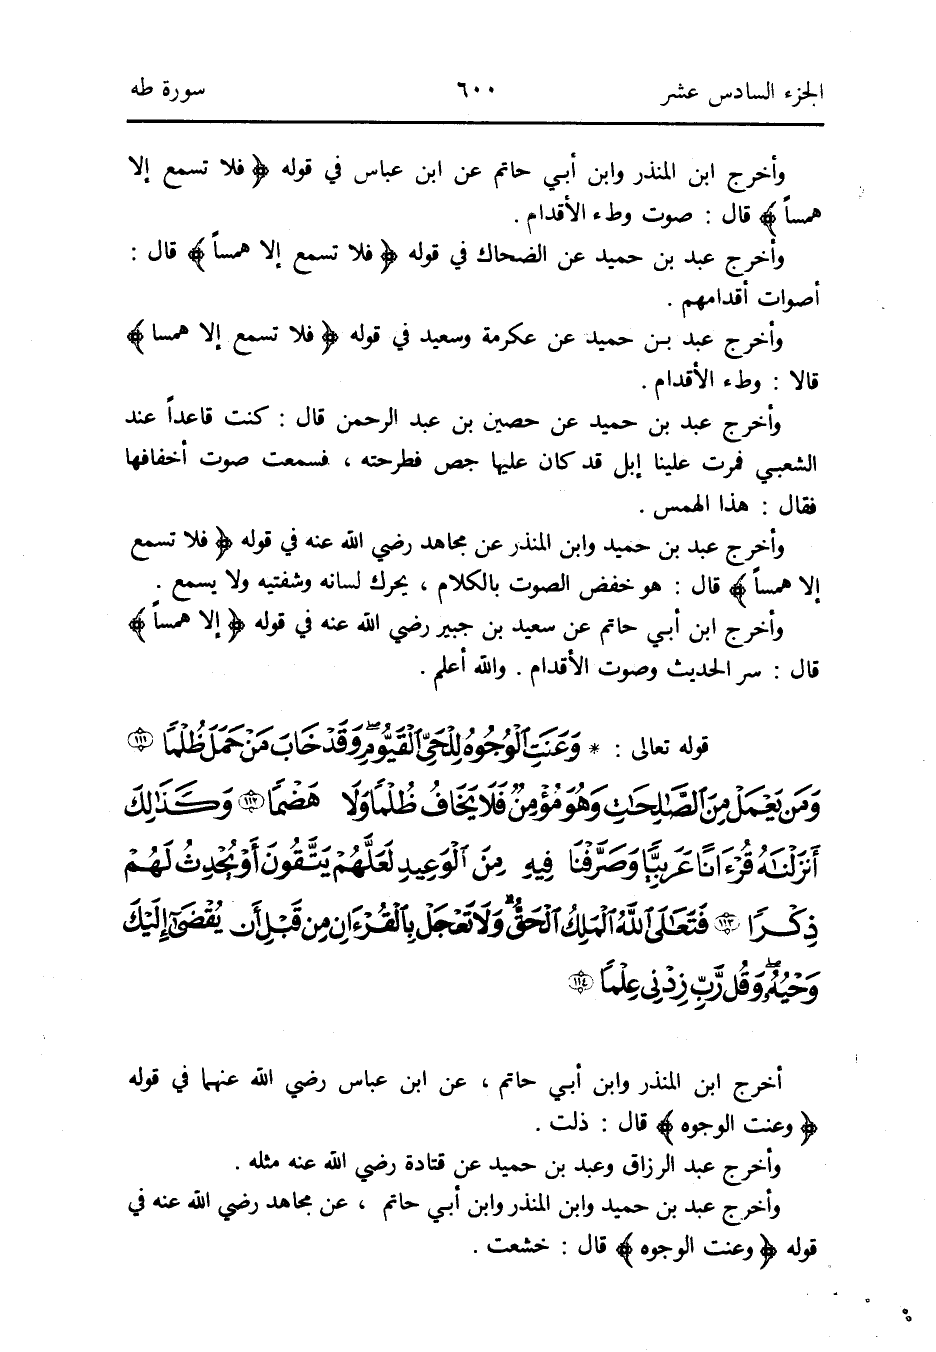 الجزء السادس عشر ٦٠٠ سورة طه
وأخرج ابن المنذر وابن أبي حاتم عن ابن عباس في قوله ﴿ فلا تسمع إلا
همساً ﴾ قال : صوت وطء الأقدام .
وأخرج عبد بن حميد عن الضحاك في قوله ﴿ فلا تسمع إلا همساً ﴾ قال :
أصوات أقدامهم .
وأخرج عبد بن حميد عن عكرمة وسعيد في قوله ﴿ فلا تسمع إلا همسا ﴾
قالا : وطء الأقدام .
وأخرج عبد بن حميد عن حصين بن عبد الرحمن قال : كنت قاعداً عند
الشعبي فمرت علينا إبل قد كان عليها جص فطرحته ، فسمعت صوت أخفافها
فقال : هذا الهمس .
وأخرج عبد بن حميد وابن المنذر عن مجاهد رضي الله عنه في قوله ﴿ فلا تسمع
إلا همساً ﴾ قال : هو خفض الصوت بالكلام ، يحرك لسانه وشفتيه ولا يسمع .
وأخرج ابن أبي حاتم عن سعيد بن جبير رضي الله عنه في قوله ﴿ إلا همساً ﴾
قال : سر الحديث وصوت الأقدام . والله أعلم .
قوله تعالى : * وَعَنَتِ ٱلْوُجُوهُ لِلْحَىِّ ٱلْقَيُّومِۖ وَقَدْ خَابَ مَنْ حَمَلَ ظُلْمًا ١١١
وَمَن يَعْمَلْ مِنَ ٱلصَّٰلِحَٰتِ وَهُوَ مُؤْمِنٌ فَلَا يَخَافُ ظُلْمًا وَلَا هَضْمًا ١١٢ وَكَذَٰلِكَ
أَنزَلْنَٰهُ قُرْءَانًا عَرَبِيًّا وَصَرَّفْنَا فِيهِ مِنَ ٱلْوَعِيدِ لَعَلَّهُمْ يَتَّقُونَ أَوْ يُحْدِثُ لَهُمْ
ذِكْرًا ١١٣ فَتَعَٰلَى ٱللَّهُ ٱلْمَلِكُ ٱلْحَقُّۗ وَلَا تَعْجَلْ بِٱلْقُرْءَانِ مِن قَبْلِ أَن يُقْضَىٰٓ إِلَيْكَ
وَحْيُهُۥۖ وَقُل رَّبِّ زِدْنِى عِلْمًا ١١٤
أخرج ابن المنذر وابن أبي حاتم ، عن ابن عباس رضي الله عنهما في قوله
﴿ وعنت الوجوه ﴾ قال : ذلت .
وأخرج عبد الرزاق وعبد بن حميد عن قتادة رضي الله عنه مثله .
وأخرج عبد بن حميد وابن المنذر وابن أبي حاتم ، عن مجاهد رضي الله عنه في
قوله ﴿ وعنت الوجوه ﴾ قال : خشعت .